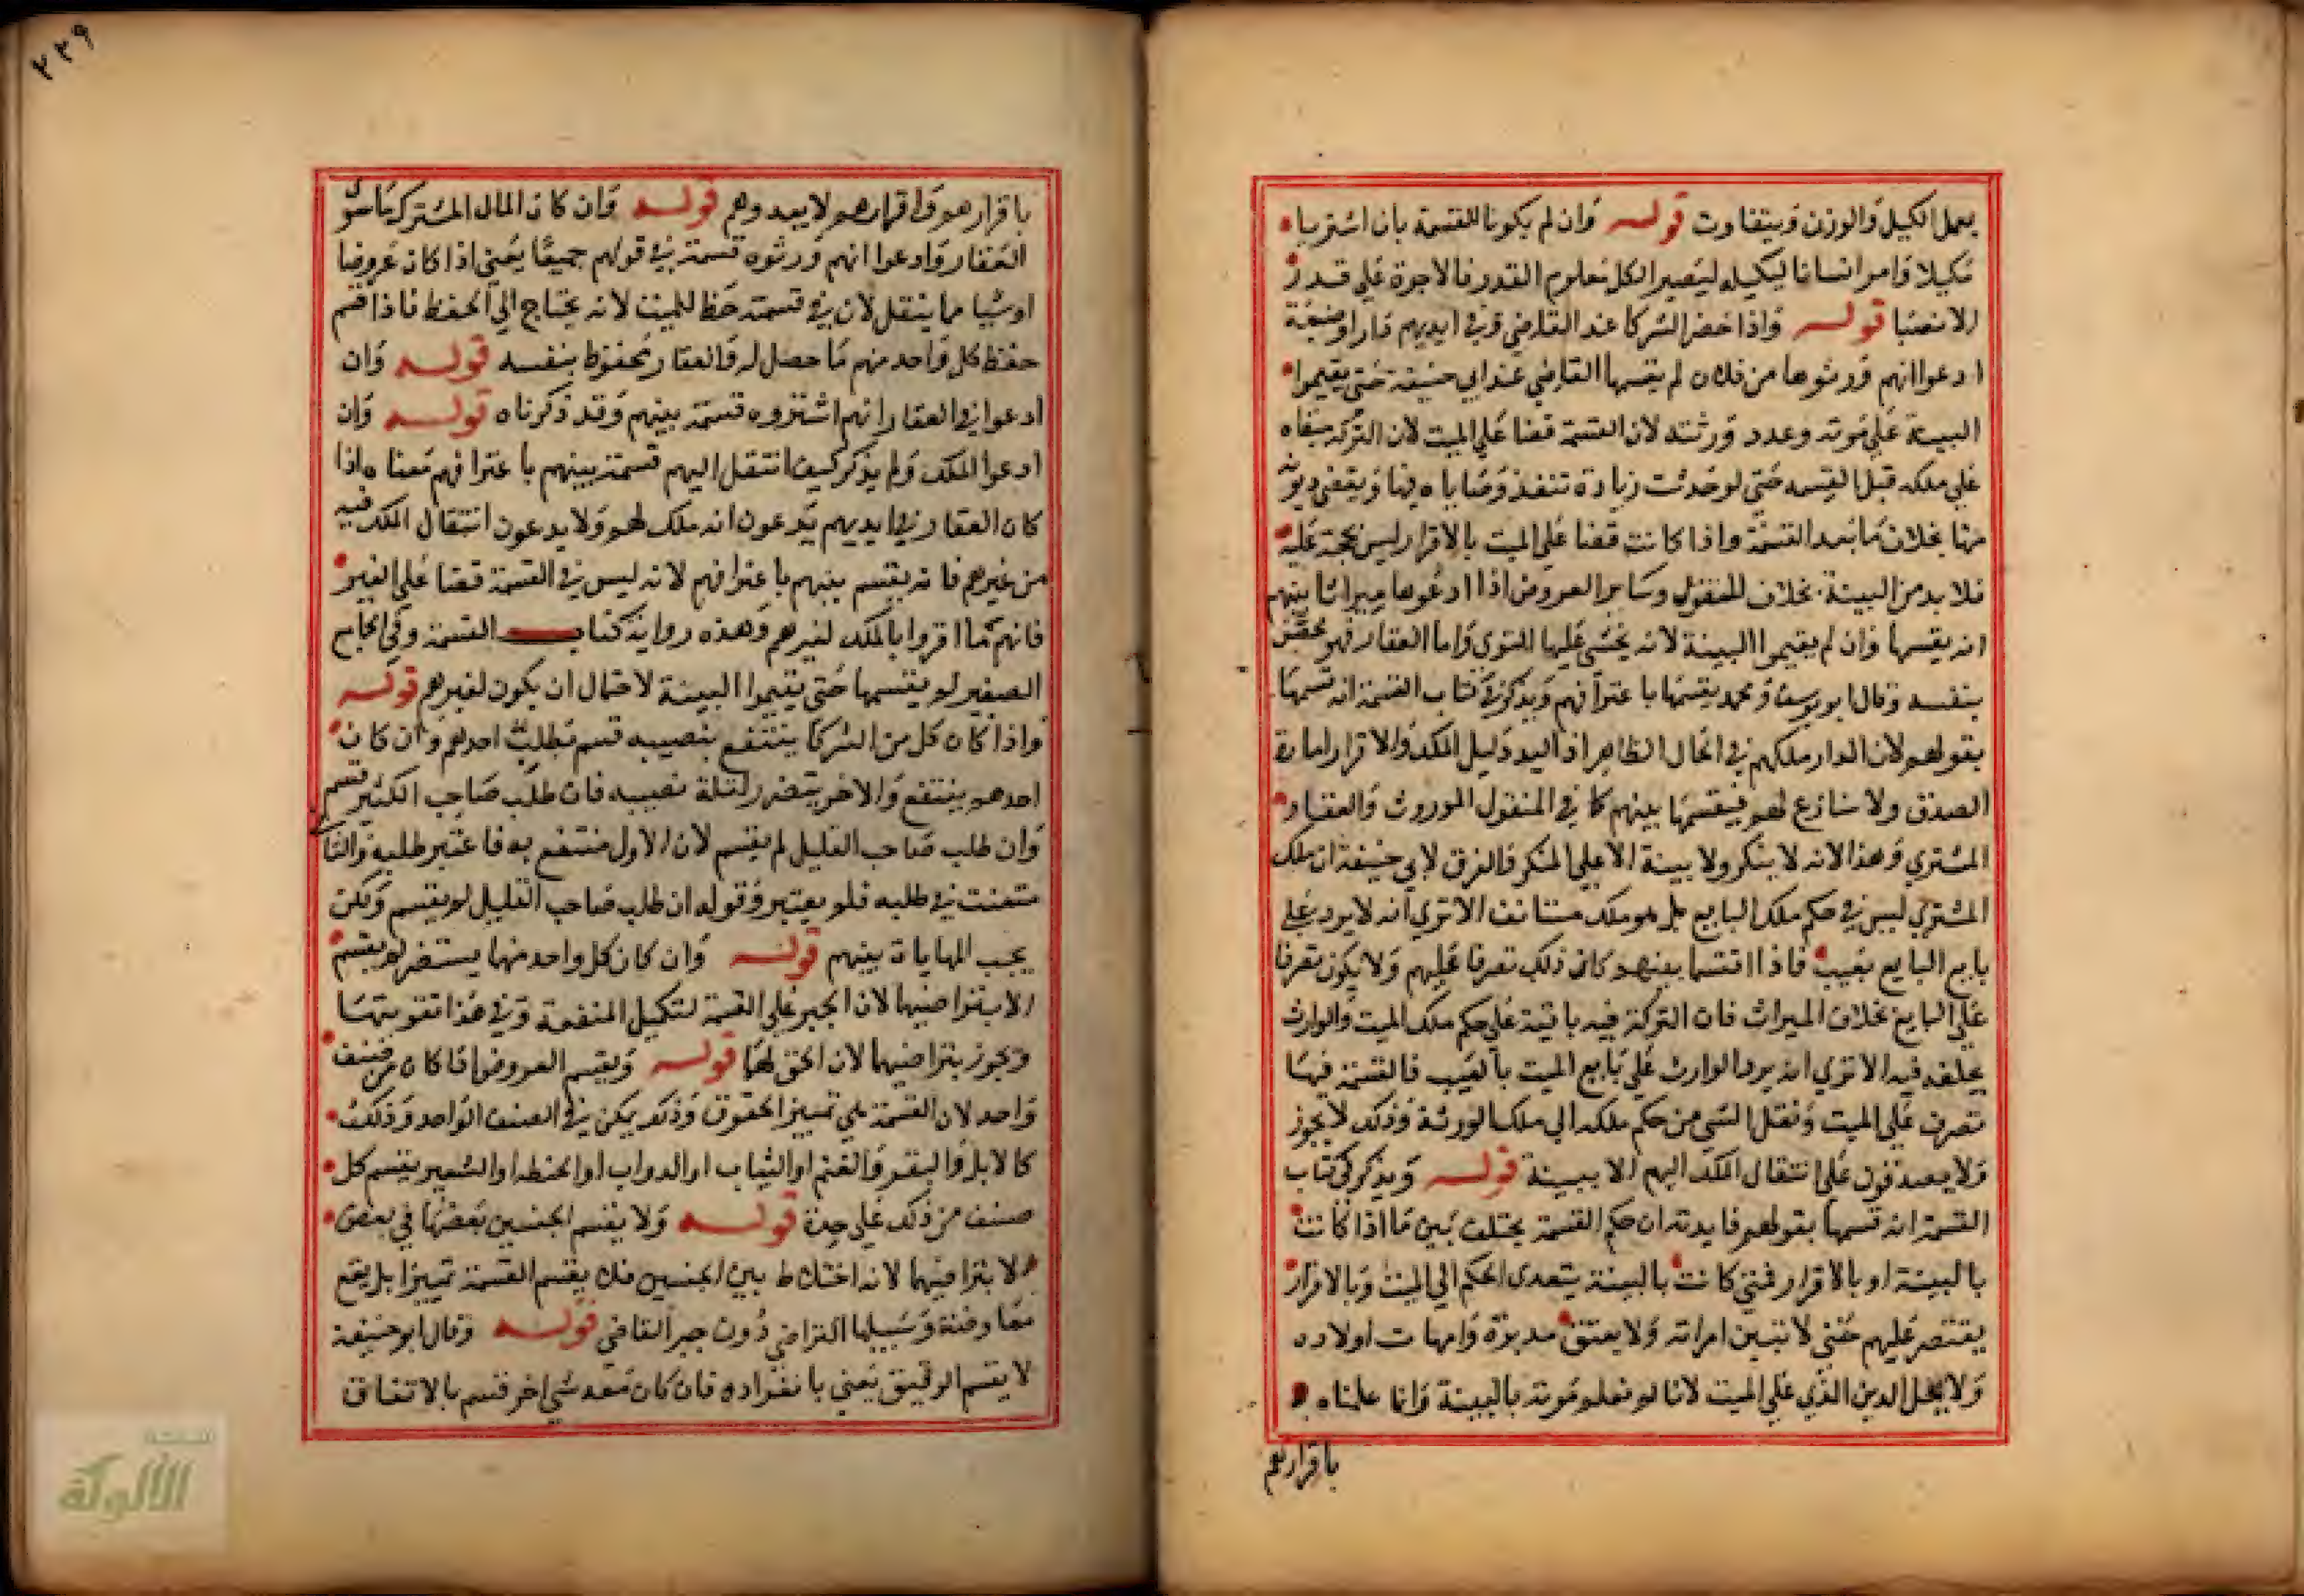 بعمل الكيل والوزن ويتفاوت قوله وان لم يكونا للقسمة بان اشتريا
مكيلا وامرا انسانا ليكيله ليصير الكل معلوم القدر فالاجرة علي قدر
الانصبا قوله واذا حضر الشركا عند القاضي وفي ايديهم دار او ضيعة
ادعوا انهم ورثوها من فلان لم يقسمها القاضي عند ابي حنيفة حتي يقيموا
البينة علي موته وعدد ورثته لان القسمة قضا علي الميت لان التركة مبقاه
علي ملكه قبل القسمه حتي لو حدثت زيادة تنفذ وصاياه فيها ويقضي ديونه
منها بخلاف ما بعد القسمة واذا كانت قضا علي الميت بالاقرار ليس بحجة عليه
فلا بد من البينة بخلاف المنقول وساير العروض اذا ادعوها ميراثا بينهم
انه يقسمها وان لم يقيموا البينة لانه يخشي عليها التوي واما العقار فهو محصن
بنفسه وقال ابو يوسف ومحمد يقسمها باعترافهم ويذكر في كتاب القسمة انه قسمها
بقولهم لان الدار ملكهم في الحال الظاهر اذ اليد دليل الملك والاقرار امارة
الصدق ولا منازع لهم فيقسمها بينهم كما في المنقول الموروث والعقار
المشتري وهذا لانه لا ينكر ولا بينة الا علي المنكر والفرق لابي حنيفة ان ملك
المشتري ليس في حكم ملك البايع بل هو ملك مستانف الا تري انه لا يرد علي
بايع البايع بعيب فاذا اقتسما بينهم كان ذلك تصرفا عليهم ولا يكون تصرفا
علي البايع بخلاف الميراث فان التركة فيه باقية علي حكم ملك الميت والوارث
يخلفه فيه الا تري انه يرد الوارث علي بايع الميت بالعيب فالقسمة فيها
تصرف علي الميت ونقل الشي من حكم ملكه الي ملك الورثة وذلك لا يجوز
ولا يصدقون علي انتقال الملك اليهم الا ببينة قوله ويذكر في كتاب
القسمة انه قسمها بقولهم فايدته ان حكم القسمة يختلف بين ما اذا كانت
بالبينة او بالاقرار فمتي كانت بالبينة يتعدى الحكم الي الميت وبالاقرار
يقتصر عليهم حتي لا تبين امراته ولا يعتق مدبره وامهات اولاده
ولا يحل الدين الذي علي الميت لانا لم نعلم موته بالبينة وانما علمناه
باقرارهم
٢٢٩
باقرارهم واقرارهم لا يعدوهم قوله وان كان المال المشترك ما سوي
العقار وادعوا انهم ورثوه قسمته في قولهم جميعا يعني اذا كان عروضا
او شيا مما ينتقل لان في قسمته حظا للميت لانه يحتاج الي الحفظ فاذا قسم
حفظ كل واحد منهم ما حصل له والعقار محفوظ بنفسه قوله وان
ادعوا في العقار انهم اشتروه قسمته بينهم وقد ذكرناه قوله وان
ادعوا الملك ولم يذكر كيف انتقل اليهم قسمته بينهم باعترافهم معناه اذا
كان العقار في ايديهم يدعون انه ملك لهم ولا يدعون انتقال الملك فيه
من غيرهم فانه يقسم بينهم باعترافهم لانه ليس في القسمة قضا علي الغير
فانهم ما اقروا بالملك لغيرهم وهذه رواية كتاب القسمة وفي الجامع
الصغير لم يقسمها حتي يقيموا البينة لاحتمال ان يكون لغيرهم قوله
واذا كان كل من الشركا ينتفع بنصيبه قسم بطلب احدهم وان كان
احدهم ينتفع والاخر يتضرر لقلة نصيبه فان طلب صاحب الكثير قسم
وان طلب صاحب القليل لم يقسم لان الاول منتفع به فاعتبر طلبه والثاني
متعنت في طلبه فلم يعتبر وقوله ان طلب صاحب القليل لم يقسم ولكن
يجب المهايات بينهم قوله وان كان كل واحد منهما يستضر لم يقسم
الا بتراضيهما لان الجبر علي القسمة لتكميل المنفعة وفي هذا تفويتها
ويجوز بتراضيهما لان الحق لهما قوله ويقسم العروض اذا كان من صنف
واحد لان القسمة هي تمييز الحقوق وذلك يمكن في الصنف الواحد وذلك
كالابل والبقر والغنم او الثياب او الدواب او الحنطه او الشعير يقسم كل
صنف من ذلك علي حدة قوله ولا يقسم الجنسين بعضها في بعض
الا بتراضيهما لانه اختلاط بين الجنسين فلا يقسم القسمة تمييزا بل يقع
معاوضة وسبيلها التراضي دون جبر القاضي قوله وقال ابو حنيفة
لا يقسم الرقيق يعني بانفراده فان كان معه شي اخر قسم بالاتفاق
شبكة
الألوكة